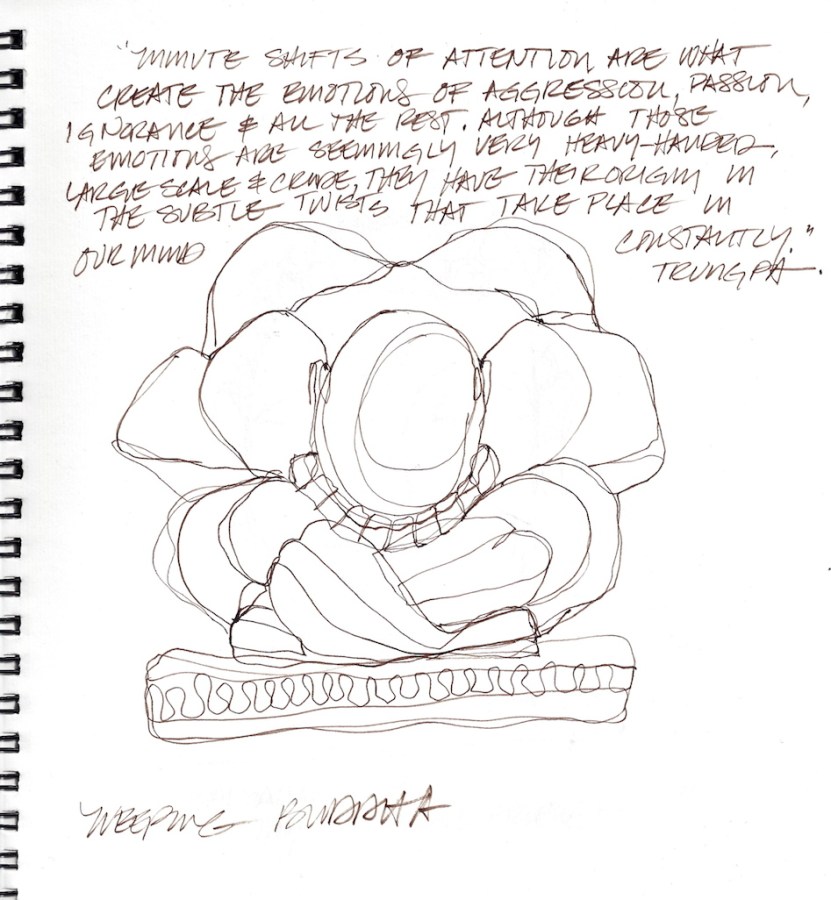 "MINUTE SHIFTS OF ATTENTION ARE WHAT
CREATE THE EMOTIONS OF AGGRESSION, PASSION,
IGNORANCE & ALL THE REST. ALTHOUGH THOSE
EMOTIONS ARE SEEMINGLY VERY HEAVY-HANDED,
LARGE SCALE & CRUDE, THEY HAVE THEIR ORIGIN IN
THE SUBTLE TWISTS THAT TAKE PLACE IN
OUR MIND CONSTANTLY."
TRUNGPA.
WEEPING BUDDHA